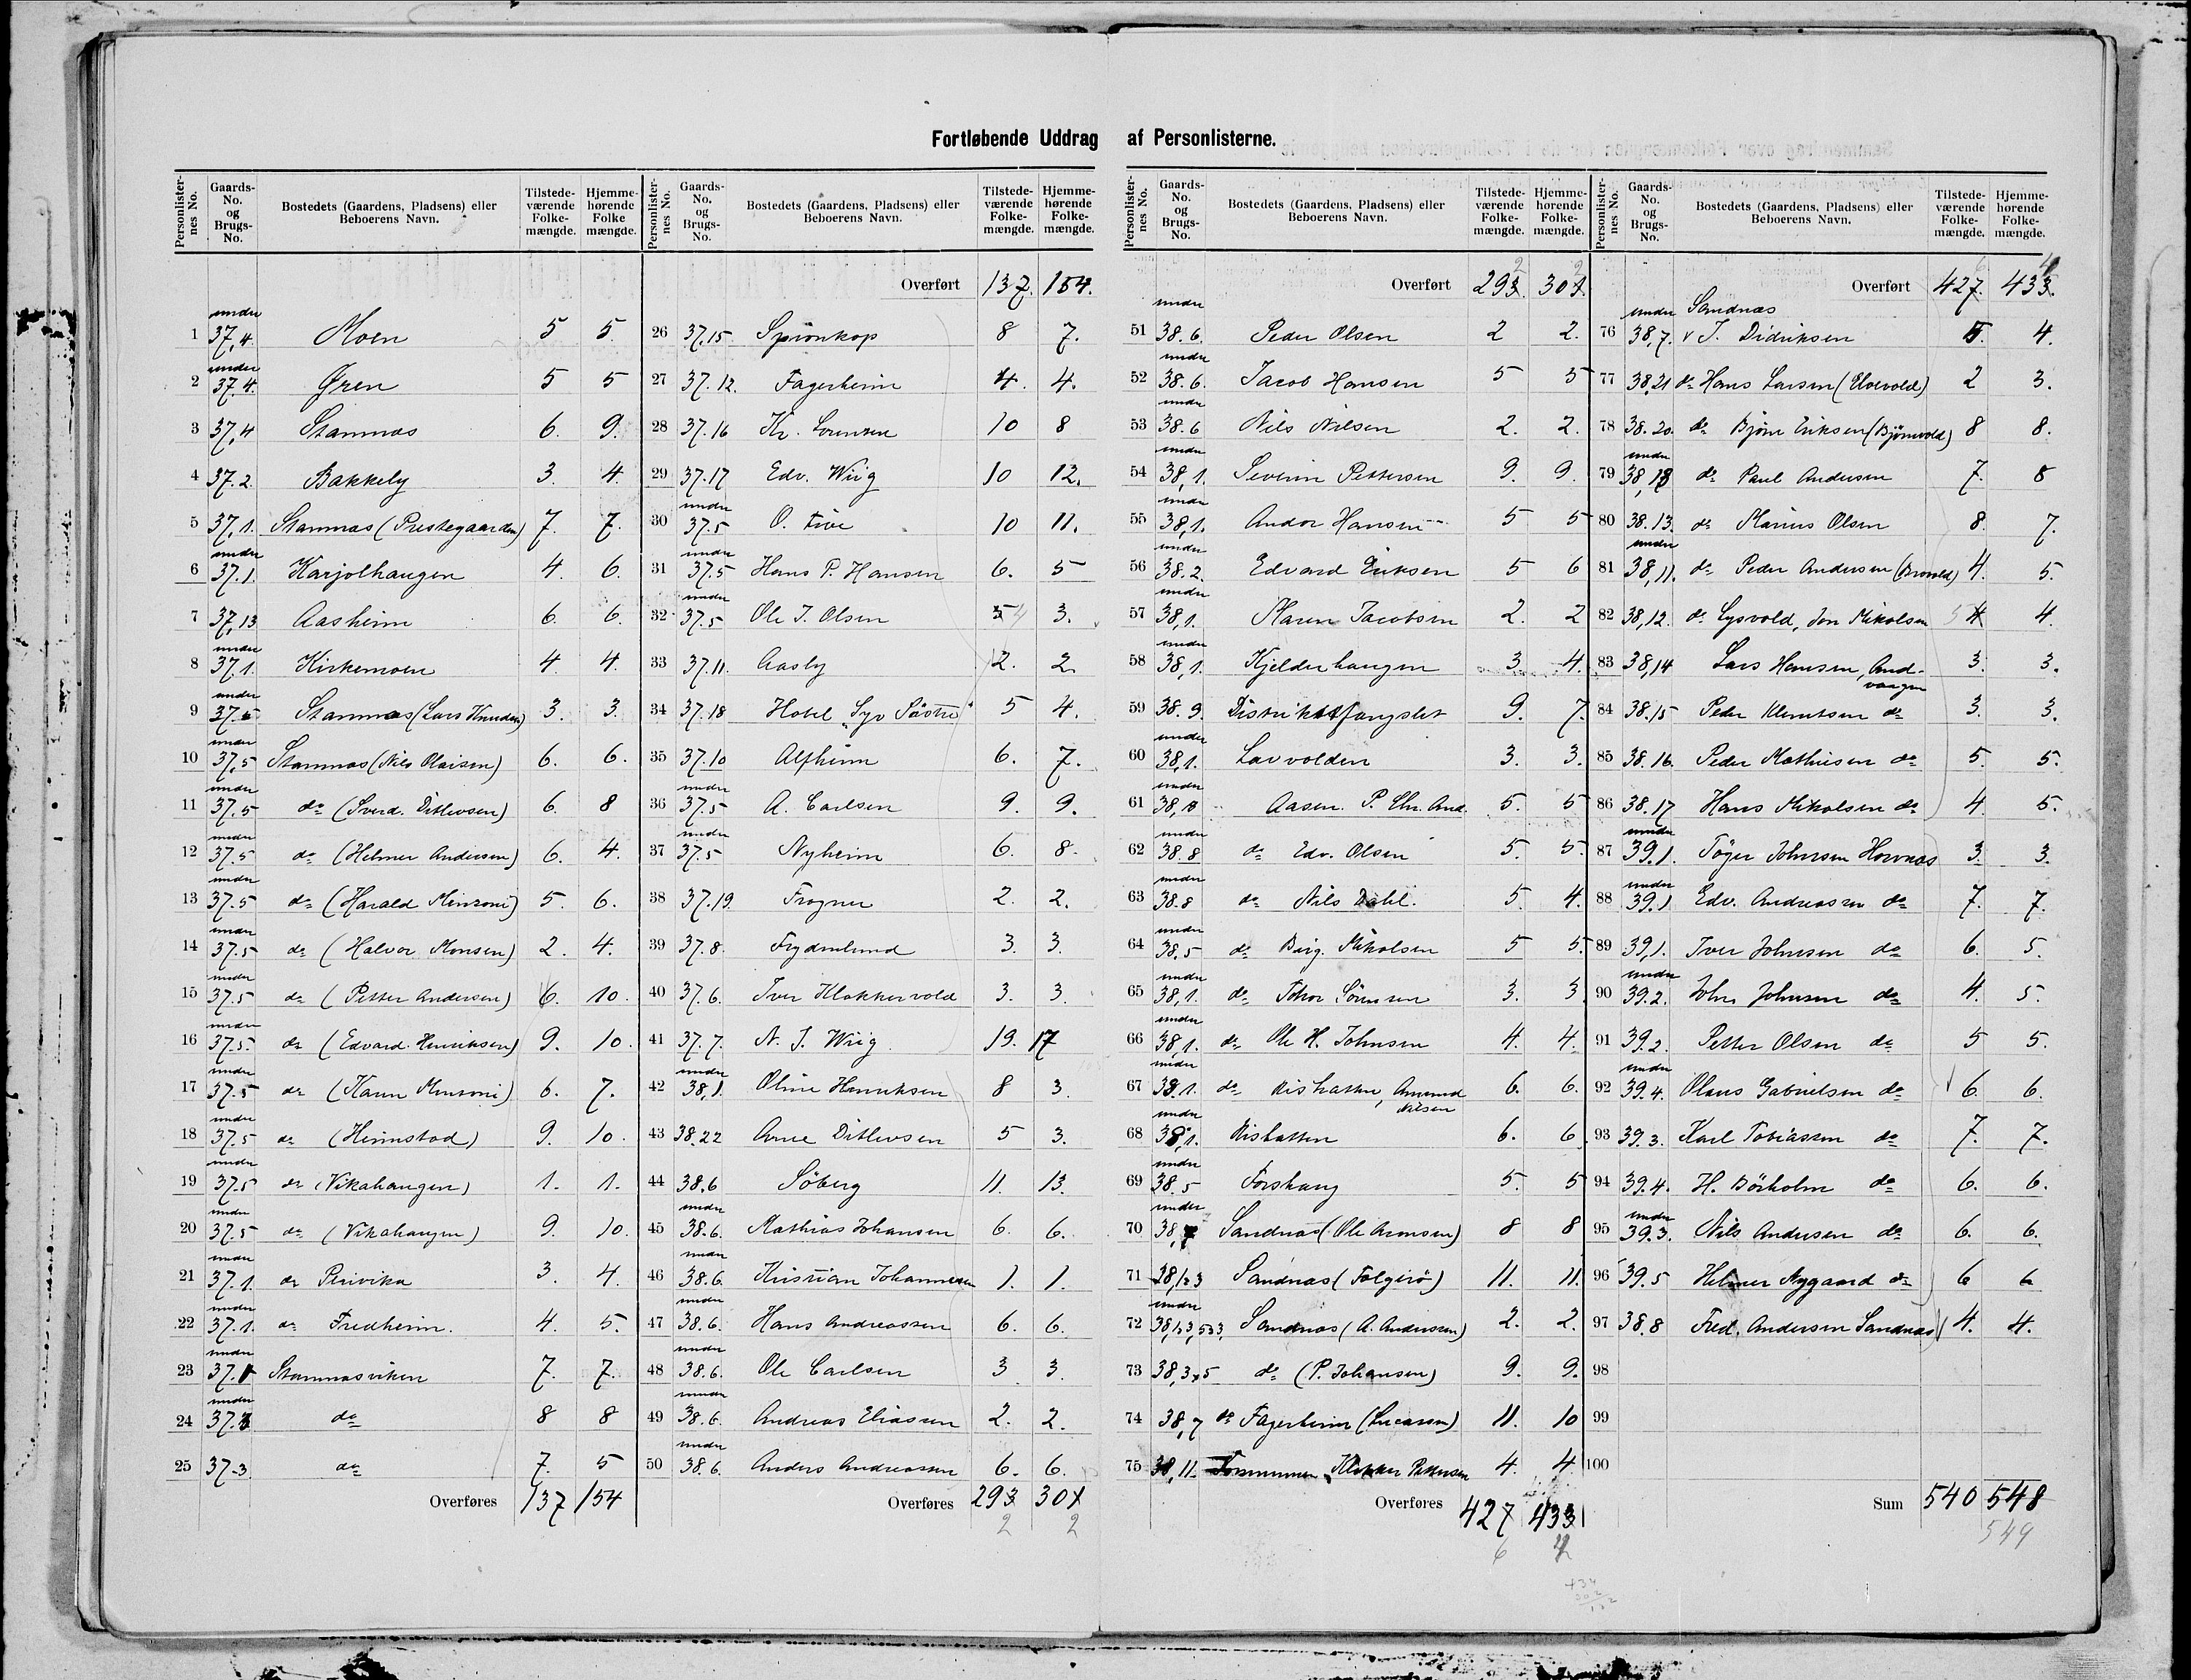 Fortløbende Uddrag af Personlisterne.
Personlister-nes No. | Gaards-No. og Brugs-No. | Bostedets (Gaardens, Pladsens) eller Beboerens Navn. | Tilstede-værende Folke-mængde. | Hjemme-hørende Folke mængde.
1 under 37,4. Moen 5 5.
2 under 37.4. Øren 5 5
3 37,4 Stamnæs 6. 9.
4 37.2. Bakkely 3. 4.
5 37,1. Stamnæs (Prestegaarden) 7. 7.
6 under 37.1. Karjolhaugen 4. 6.
7 37,13 Aasheim 6. 6.
8 under 37.1. Kirkemoen 4. 4.
9 under 37.5 Stamnæs (Lars Knudsen) 3. 3.
10 under 37,5 Stamnæs (Nils Olaisen) 6. 6.
11 under 37.5 do (Sverd. Ditlevsen) 6. 8
12 under 37.5 do (Helmer Andersen) 6. 4.
13 under 37.5 do (Harald Minsoni) 5. 6.
14 under 37.5 do (Halvor Monsen) 2. 4.
15 under 37.5 do (Petter Andersen) 6. 10.
16 under 37.5. do (Edvard Henriksen) 9. 10.
17 under 37.5 do (Karen Minsoni) 6. 7.
18 under 37.5 do (Heimstad) 9. 10.
19 under 37.5 do (Vikahaugen) 1. 1.
20 under 37.5 do (Vikahaugen) 9. 10.
21 under 37.1. do Perivika 3. 4.
22 under 37.1. do Fredheim. 4. 5.
23 under 37.1 Stamnæsviken 7. 7.
24 under 37.3 do 8 8
25 37.3. do 7. 5
Overføres 137 154
Personlister-nes No. | Gaards-No. og Brugs-No. | Bostedets (Gaardens, Pladsens) eller Beboerens Navn. | Tilstede-værende Folke-mængde. | Hjemme-hørende Folke-mængde.
Overført 137. 154.
26 37.15 Spionkop 8 7.
27 37.12. Fagerheim 4. 4.
28 37.16 Kr. Lorenzen 10 8
29 37.17 Edv. Wiig 10 12.
30 under 37.5 O. Five 10 11.
31 under 37.5 Hans P. Hansen 6. 5
32 under 37.5 Ole J. Olsen 5 4 3.
33 37.11. Aasly 2. 2
34 37.18 Hotel "Syv Søstre" 5 4.
35 37.10 Alfheim 6. 7.
36 under 37.5 A. Carlsen 9. 9.
37 under 37.5 Nyheim 6. 8.
38 37.19. Frogner 2. 2.
39 37.8. Frydenlund 3. 3.
40 37.6. Iver Klokkervold 3. 3.
41 37.7. N. J. Wiig. 19. 17
42 under 38,1. Oline Henriksen 8 3.
43 38.22 Arne Ditlevsen 5 3.
44 38.6 Söberg 11. 13.
45 under 38.6. Mathias Johansen 6. 6.
46 under 38.6. Kristian Johannesen 1. 1.
47 under 38.6. Hans Andreassen 6. 6.
48 under 38.6. Ole Carlsen 3 3.
49 under 38.6. Andreas Eliassen 2. 2.
50 under 38.6. Anders Andreassen 6. 6.
Overføres 293 301
2 2
Personlister-nes No. | Gaards-No. og Brugs-No. | Bostedets (Gaardens, Pladsens) eller Beboerens Navn. | Tilstede-værende Folke-mængde. | Hjemme-hørende Folke-mængde.
2 2
Overført 293. 301.
51 under 38.6. Peder Olsen 2 2.
52 under 38.6. Jacob Hansen 5 5
53 under 38.6 Nils Nilsen 2. 2.
54 under 38,1. Severin Pettersen 9. 9.
55 under 38,1. Andor Hansen 5 5
56 under 38.2. Edvard Eriksen 5 6
57 under 38,1. Maren Jacobsen 2. 2
58 under 38,1. Kjelderhaugen 3. 4.
59 38.9. Distriktsfængslet 9. 7.
60 under 38,1. Lavvolden 3. 3.
61 under 38,8 Aasen. P. Chr. And. 5. 5
62 under 38.8 do Edv. Olsen 5. 5
63 under 38.8 do Nils Dahl. 5. 4.
64 under 38.5 do Birg. Mikalsen 5 5.
65 under 38,1. do Thor Sörensen 3. 3
66 under 38,1. do Ole H. Johnsen 4. 4.
67 under 38.1. do Rishatten, Amund Nilsen 6. 6.
68 under 38,1. Rishatten 6. 6.
69 under 38.5 Forshaug 5. 5
70 under 38,7 Sandnæs (Ole Aronsen) 8 8
71 38,123 Sandnæs (Falgerö) 11. 11.
72 under Sandnæs (A. Andersen) 2. 2.
73 38,3,5 do (P. Johansen) 9. 9.
74 38,7 do Fagerheim (Lucassen) 11. 10
75 38,11. Klokker Pettersen 4. 4.
Overføres 427 433
6 4
434
302
132
Personlister-nes No. | Gaards-No. og Brugs-No. | Bostedets (Gaardens, Pladsens) eller Beboerens Navn. | Tilstede-værende Folke-mængde. | Hjemme-hørende Folke-mængde.
6 4
Overført 427. 433.
76 under 38,7. Sandnæs v J. Didriksen 5. 4.
77 38.21 do Hans Larsen (Elvevold) 2 3.
78 38.20. do Bjørn Eriksen (Bjørnvold) 8 8.
79 under 38,18 do Paul Andersen 7. 8
80 38.13. do Marius Olsen 8. 7.
81 under 38,11. do Peder Andersen (Brovold) 4. 5.
82 38,12. do Lysvold, Jon Mikalsen 5 4 4.
83 38,14 Lars Hansen, And-vaagen 3. 3.
84 38.15 Peder Klemetsen do 3. 3.
85 38.16. Peder Mathiesen do 5. 5.
86 38.17 Hans Mikalsen do 4. 5.
87 under 39.1. Töger Johnsen Hovnæs 3. 3.
88 under 39.1 Edv. Andreassen do 7. 7.
89 39,1. Iver Johnsen do 6. 5.
90 under 39.2. John Johnsen do 4. 5.
91 39.2. Petter Olsen do 5 5.
92 under 39.4. Olaus Gabrielsen do 6. 6.
93 39.3. Karl Tobiassen do 7. 7.
94 39.4. H. Börholm do 6. 6.
95 under 39.3. Nils Andersen do 6. 6.
96 39.5 Helmer Nygaard do 6 6
97 38.8 Fred. Andersen Sandnæs 4. 4.
98
99
100
Sum 540 548
549